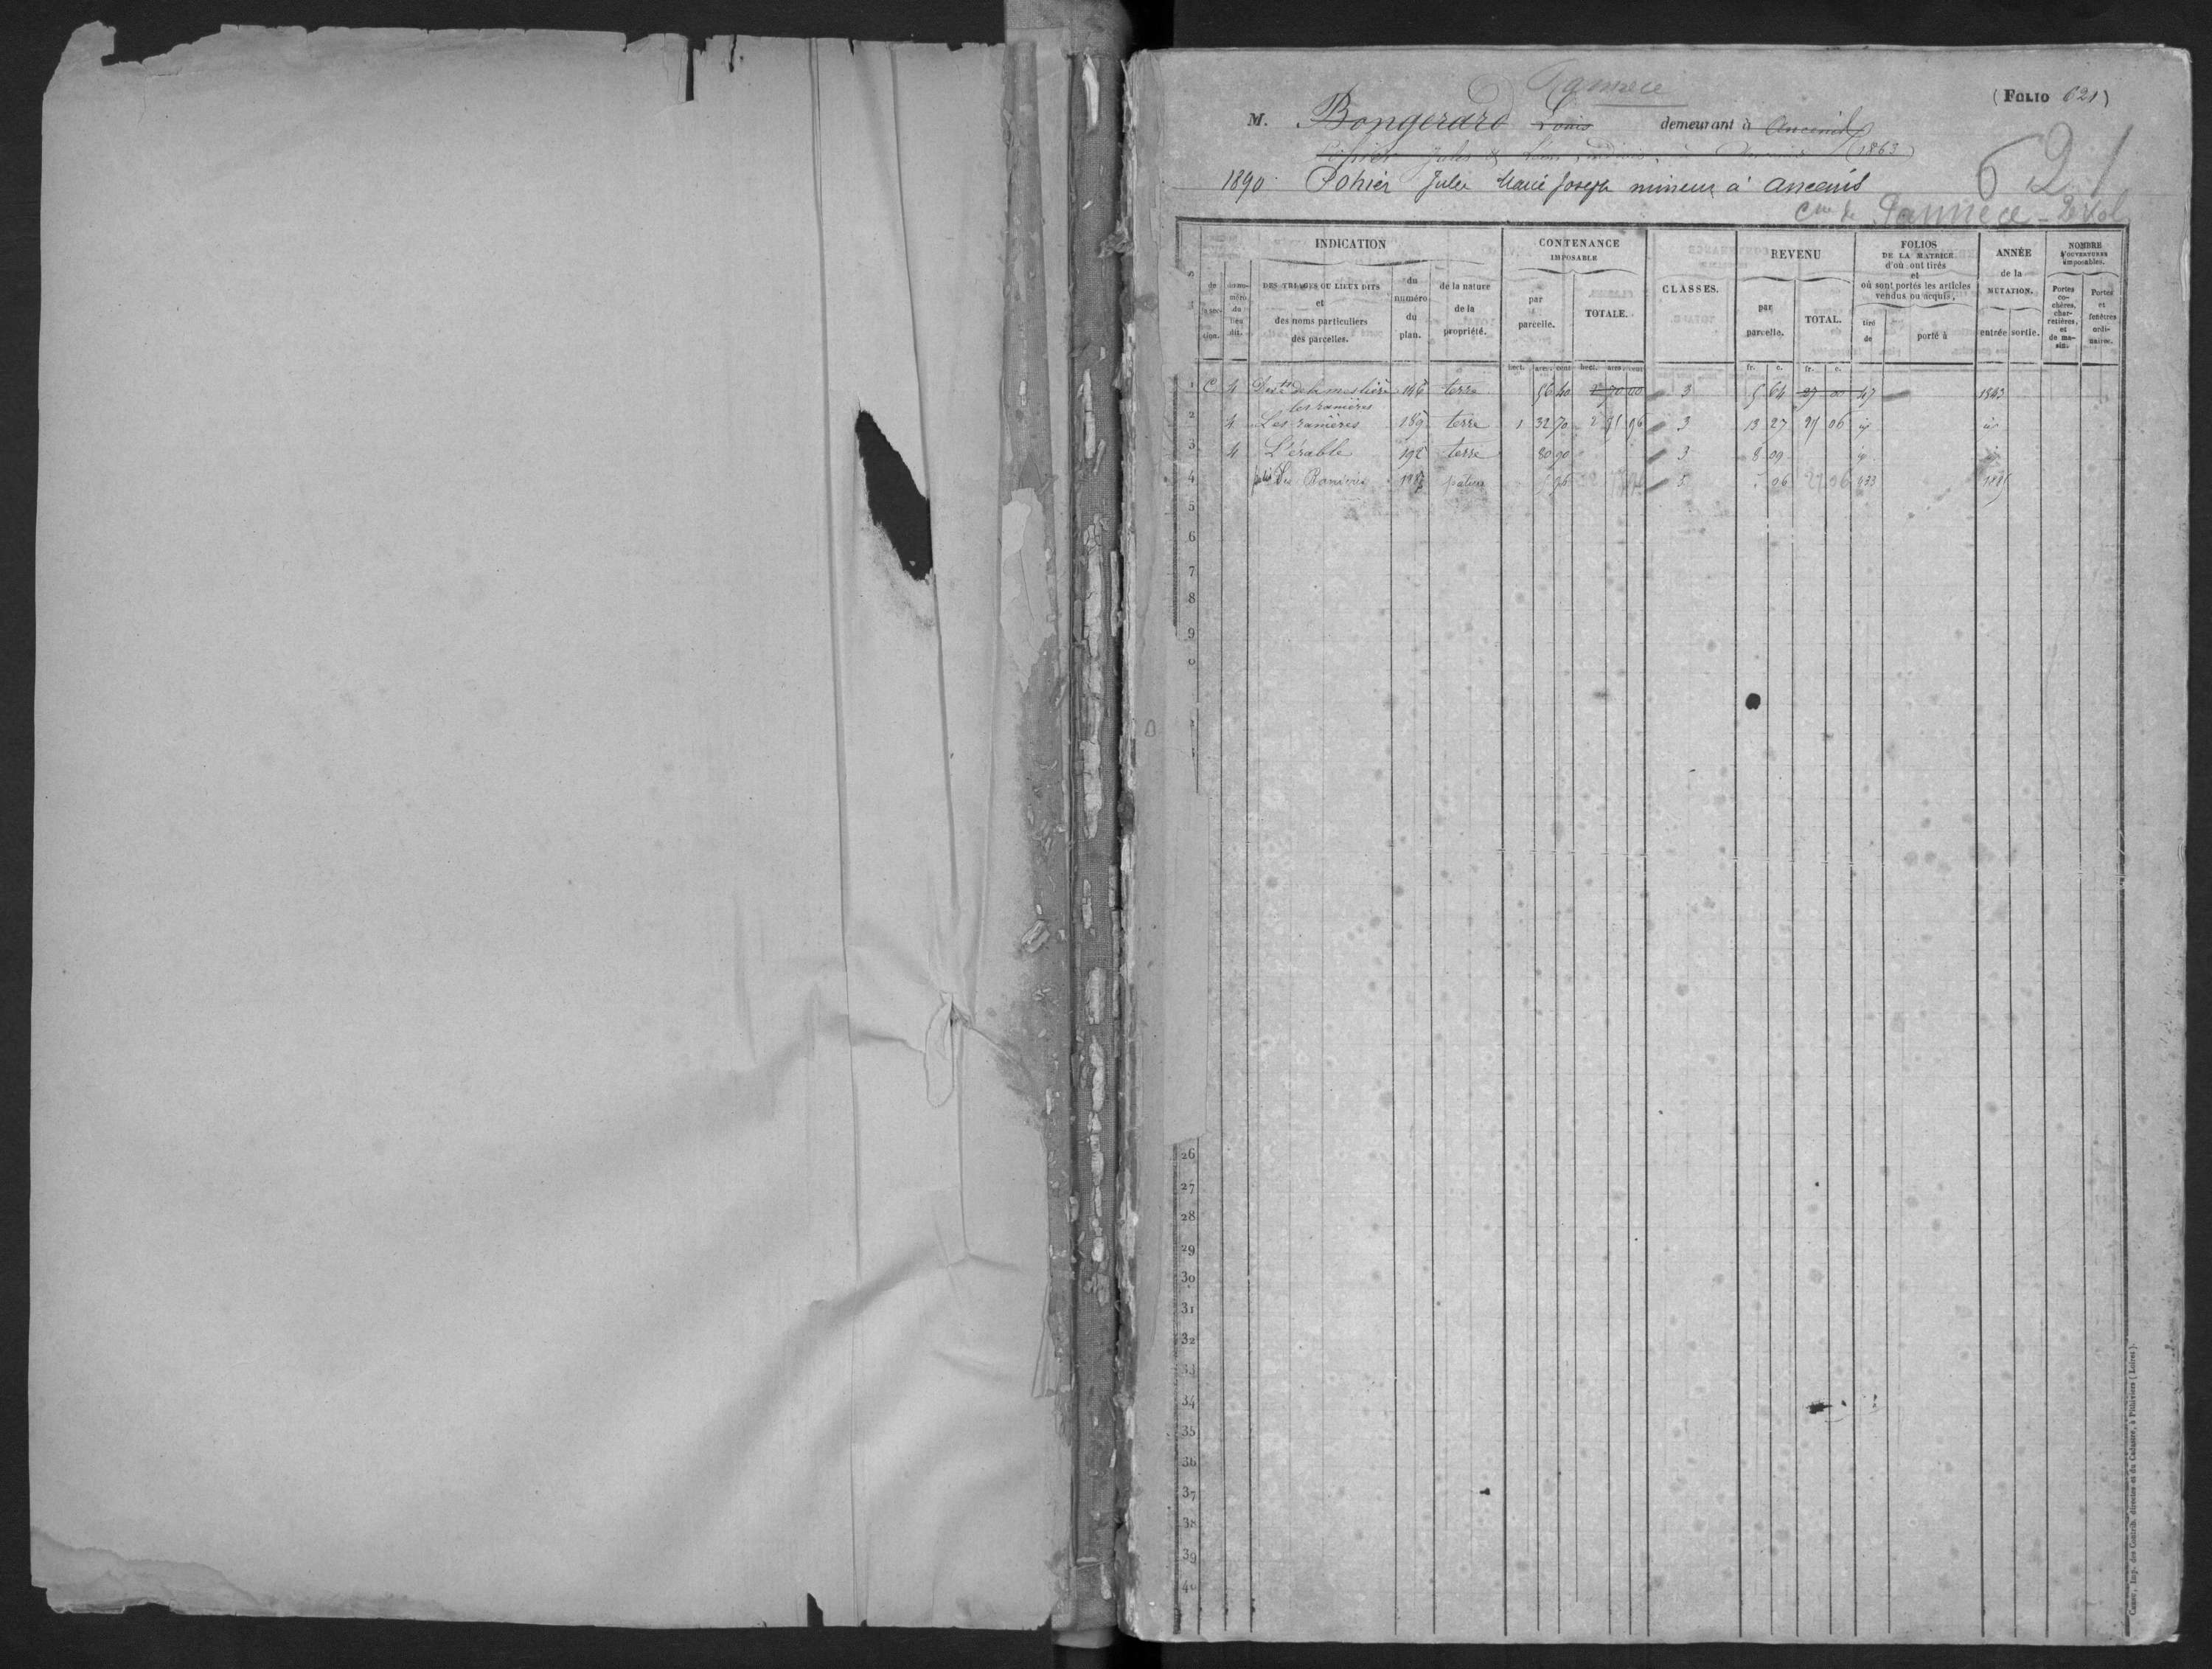 Pannecé
(FOLIO 621)
M. Bongerard Louis demeurant à Ancenis
Pohier Jules & Léon 1863
1890 Pohier Jules Marie Joseph mineur à Ancenis
621
Cne de Pannecé - 2e Vol
INDICATION
CONTENANCE IMPOSABLE
CLASSES.
REVENU
FOLIOS DE LA MATRICE d'où ont tirés et où sont portés les articles vendus ou acquis.
ANNÉE de la MUTATION.
NOMBRE D'OUVERTURES imposables.
de la section.
du numéro du lieu dit.
DES TRIAGES OU LIEUX DITS et des noms particuliers des parcelles.
du numéro du plan.
de la nature de la propriété.
par parcelle.
TOTALE.
par parcelle.
TOTAL.
tiré de
porté à
entrée
sortie.
Portes cochères, charretières, et de magasin.
Portes et fenêtres ordinaires.
hect. ares. cent. hect. ares. cent. fr. c. fr. c.
1 C 4 de la meslière 146 terre 56 40 2 70 00 3 5 64 27 00 47 1843
les ranières
2 4 Les ranières 189 terre 1 32 70 2 75 96 3 13 27 27 06 id id
3 4 L'érable 192 terre 80 90 3 8 09 id id
4 Les Ranières 198p 5 96 5 06 27 06 433
5
6
7
8
9
26
27
28
29
30
31
32
33
34
35
36
37
38
39
40
Caser, Imp. des Contrib. directes et du Cadastre, à Pithiviers (Loiret).